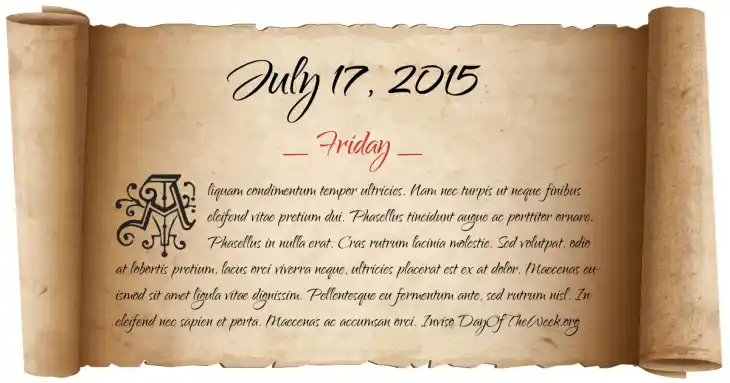 July 17, 2015
Friday
Aliquam condimentum tempor ultricies. Nam nec turpis ut neque finibus
eleifend vitae pretium dui. Phasellus tincidunt augue ac porttitor ornare.
Phasellus in nulla erat. Cras rutrum lacinia molestie. Sed volutpat, odio
at lobortis pretium, lacus orci viverra neque, ultricies placerat est ex at dolor. Maecenas eu-
ismod sit amet ligula vitae dignissim. Pellentesque eu fermentum ante, sed rutrum nisl. In
eleifend nec sapien et porta. Maecenas ac accumsan orci. Inviso DayOfTheWeek.org